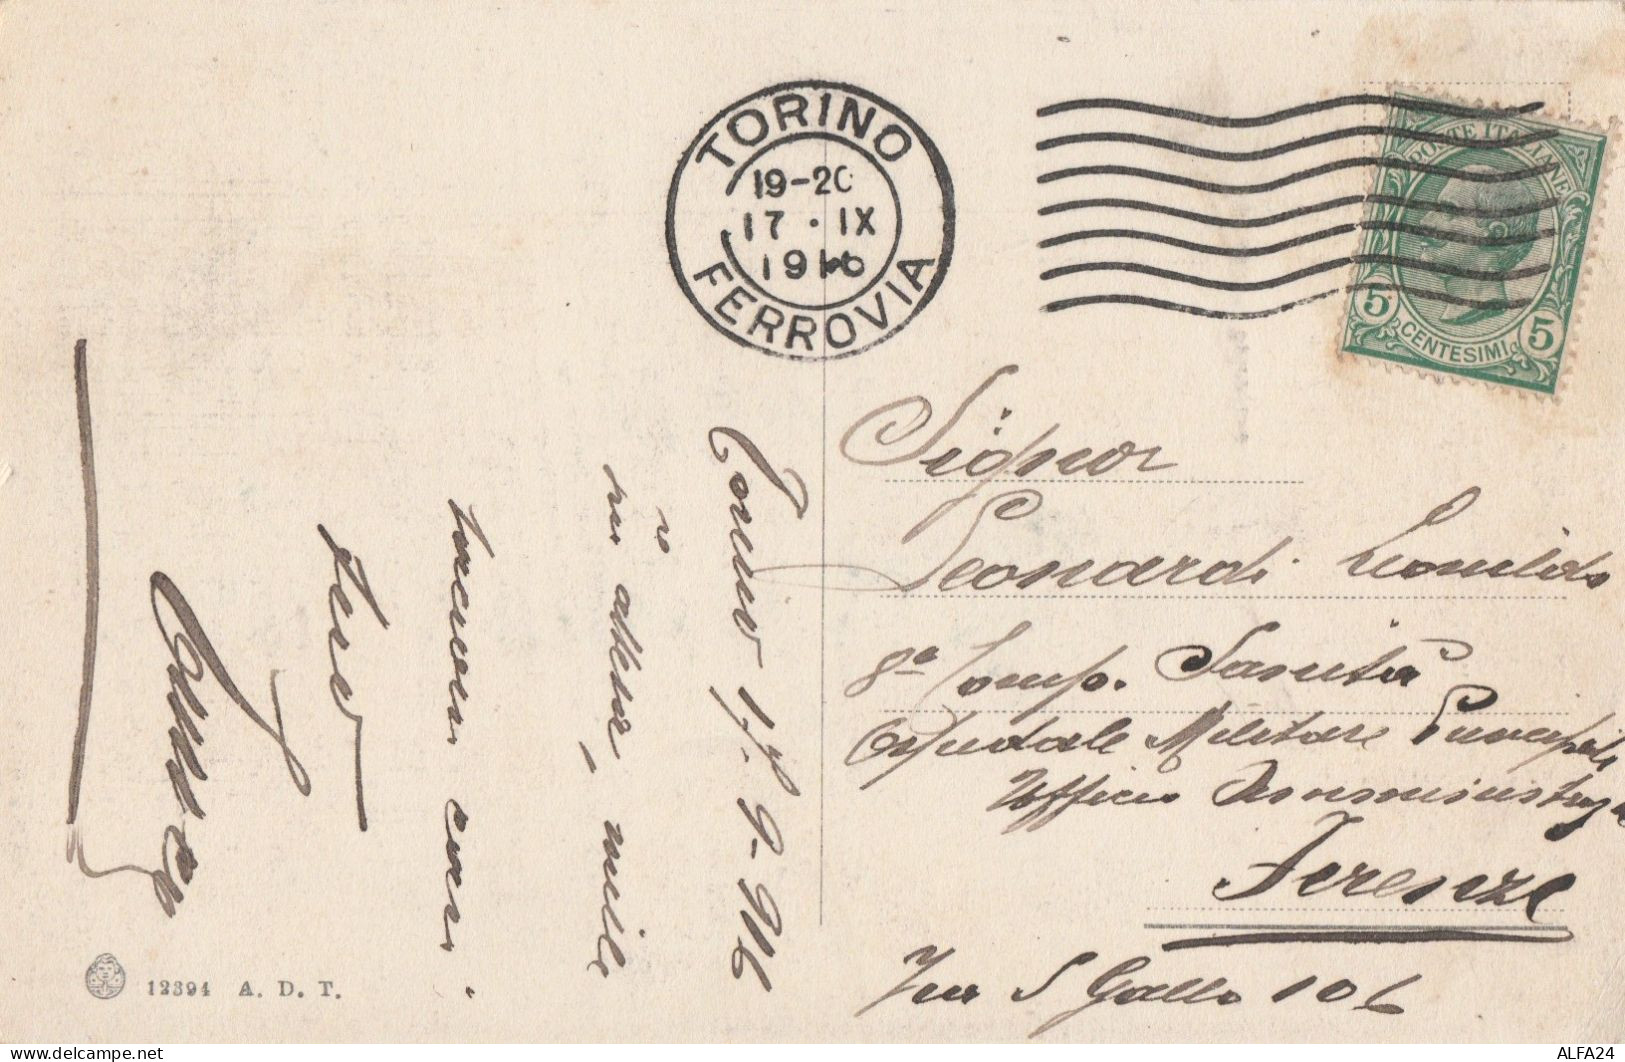 TORINO
19-20
17 · IX
1916
FERROVIA
POSTE ITALIANE
5 CENTESIMI 5
Signor
Leonardi Leonildo
8ª Comp. Sanità
Ospedale Militare Principale
Ufficio Amministraz
Firenze
Via S Gallo 106
Torino 17-9-916
in attesa, mille
cari
12394 A. D. T.
delcampe.net
ALFA24